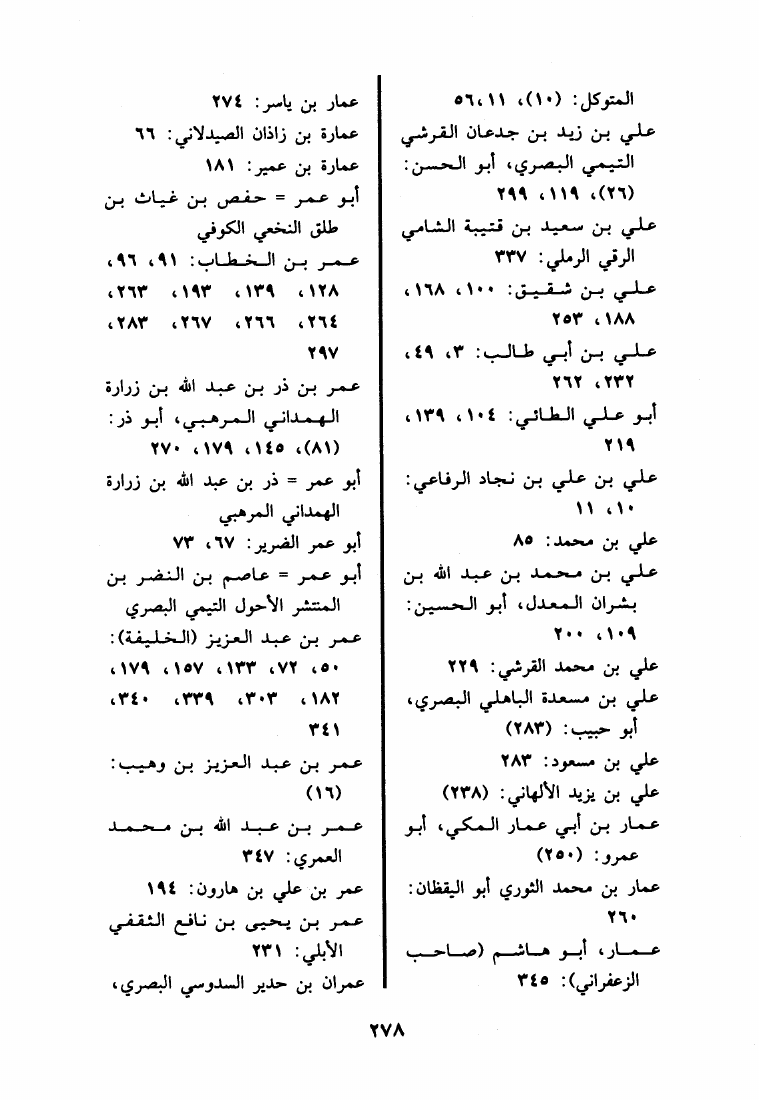 المتوكل: (١٠)، ١١، ٥٦
علي بن زيد بن جدعان القرشي
التيمي البصري، أبو الحسن:
(٢٦)، ١١٩، ٢٩٩
علي بن سعيد بن قتيبة الشامي
الرقي الرملي: ٣٣٧
علي بن شقيق: ١٠٠، ١٦٨،
١٨٨، ٢٥٣
علي بن أبي طالب: ٣، ٤٩،
٢٣٢، ٢٦٢
أبو علي الطائي: ١٠٤، ١٣٩،
٢١٩
علي بن علي بن نجاد الرفاعي:
١٠، ١١
علي بن محمد: ٨٥
علي بن محمد بن عبد الله بن
بشران المعدل، أبو الحسين:
١٠٩، ٢٠٠
علي بن محمد القرشي: ٢٢٩
علي بن مسعدة الباهلي البصري،
أبو حبيب: (٢٨٣)
علي بن مسعود: ٢٨٣
علي بن يزيد الألهاني: (٢٣٨)
عمار بن أبي عمار المكي، أبو
عمرو: (٢٥٠)
عمار بن محمد الثوري أبو اليقظان:
٢٦٠
عمار، أبو هاشم (صاحب
الزعفراني): ٣٤٥
عمار بن ياسر: ٢٧٤
عمارة بن زاذان الصيدلاني: ٦٦
عمارة بن عمير: ١٨١
أبو عمر = حفص بن غياث بن
طلق النخعي الكوفي
عمر بن الخطاب: ٩١، ٩٦،
١٢٨، ١٣٩، ١٩٣، ٢٦٣،
٢٦٤، ٢٦٦، ٢٦٧، ٢٨٣،
٢٩٧
عمر بن ذر بن عبد الله بن زرارة
الهمداني المرهبي، أبو ذر:
(٨١)، ١٤٥، ١٧٩، ٢٧٠
أبو عمر = ذر بن عبد الله بن زرارة
الهمداني المرهبي
أبو عمر الضرير: ٦٧، ٧٣
أبو عمر = عاصم بن النضر بن
المنتشر الأحول التيمي البصري
عمر بن عبد العزيز (الخليفة):
٥٠، ٧٢، ١٣٣، ١٥٧، ١٧٩،
١٨٢، ٣٠٣، ٣٣٩، ٣٤٠،
٣٤١
عمر بن عبد العزيز بن وهيب:
(١٦)
عمر بن عبد الله بن محمد
العمري: ٣٤٧
عمر بن علي بن هارون: ١٩٤
عمر بن يحيى بن نافع الثقفي
الأبلي: ٢٣١
عمران بن حدير السدوسي البصري،
٢٧٨